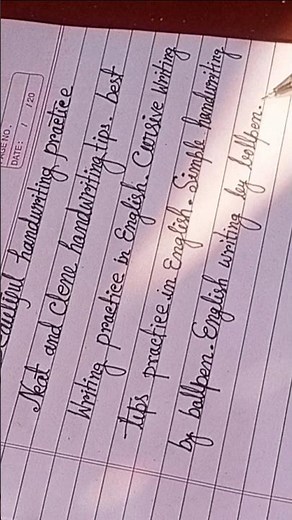 PAGE NO.:
DATE: / /20
Beautiful handwriting practice
Neat and Clene handwriting tips. best
Writing practice in English. Cursive Writing
tips practice in English. Simple handwriting
by ballpen. English writing by ballpen.